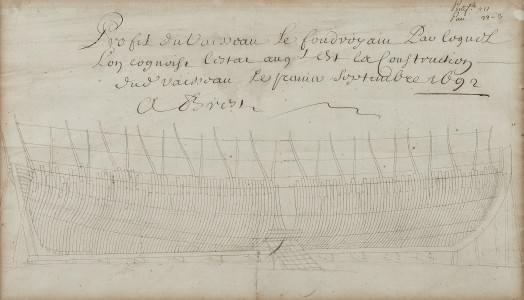 Profil du Vaisseau le foudroyant Par lequel
l'on cognoist l'estat auql est la Construction
dud vaisseau le premier Septembre 1692
A Brest